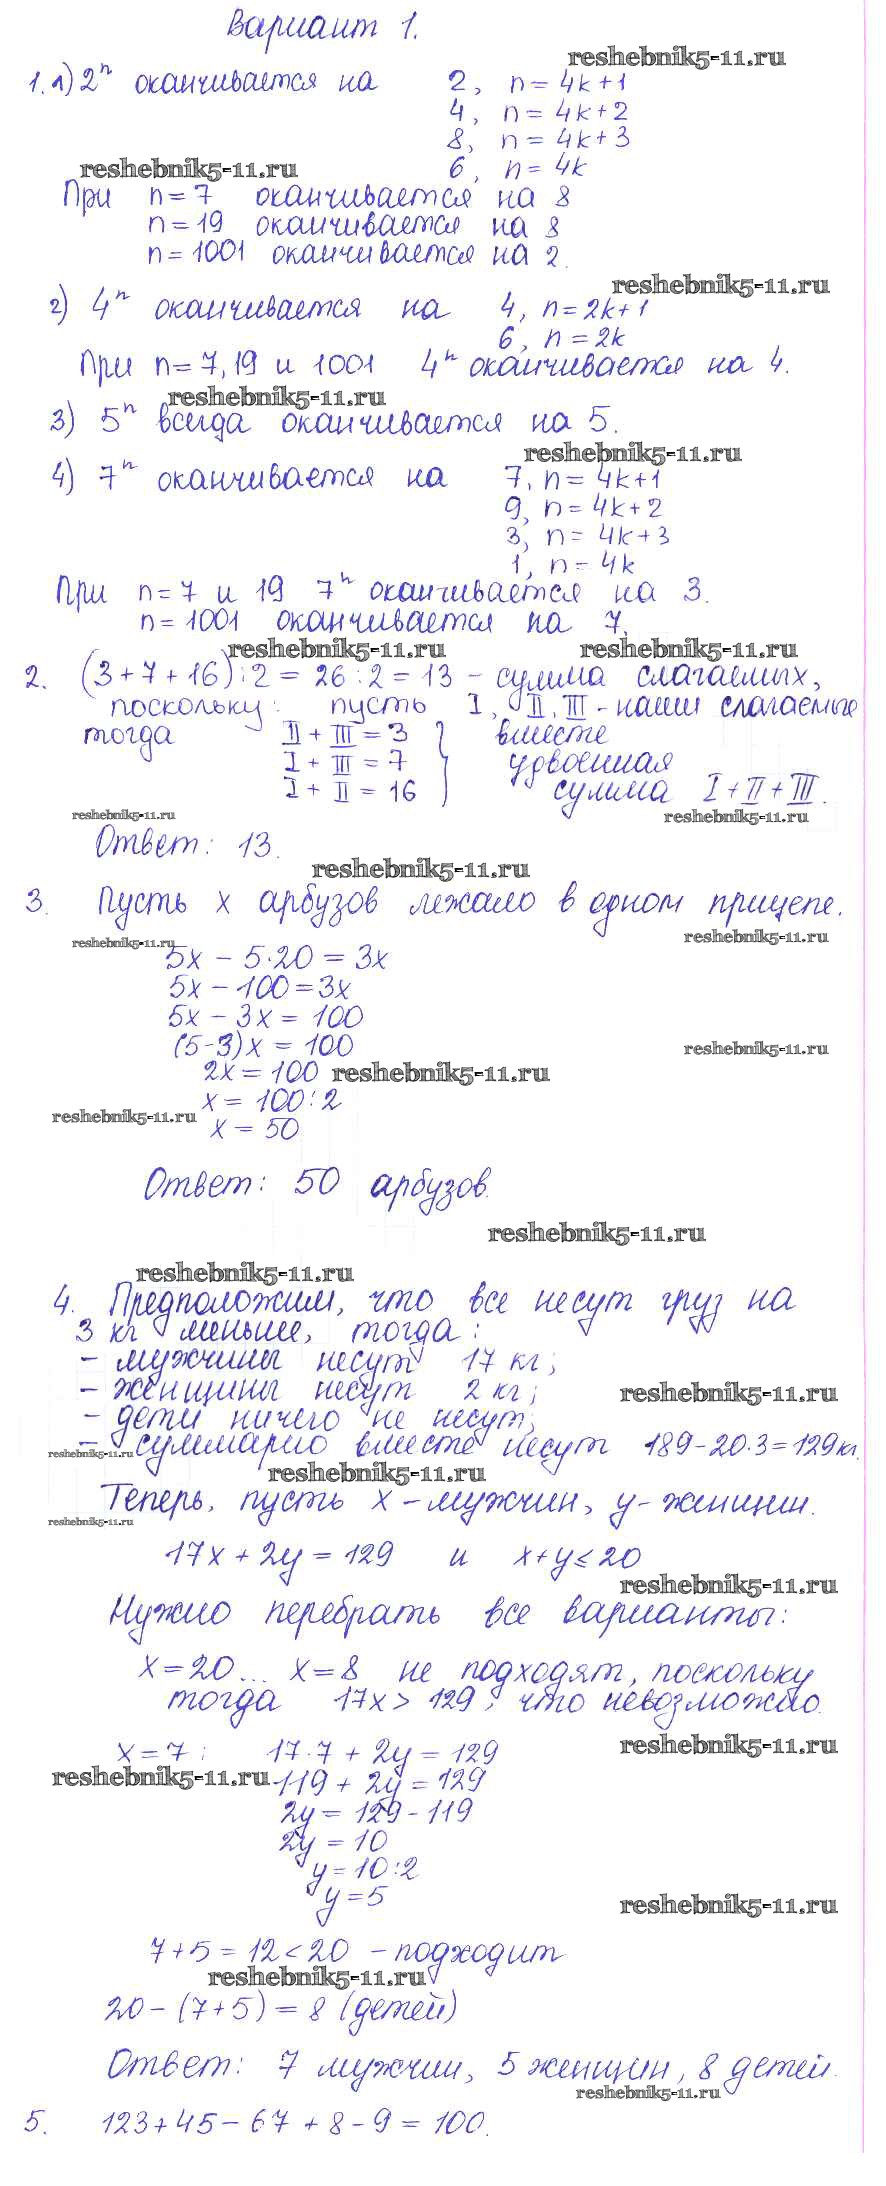 Вариант 1.
reshebnik5-11.ru
1. 1) 2ⁿ оканчивается на 2, n = 4k+1
4, n = 4k+2
8, n = 4k+3
reshebnik5-11.ru 6, n = 4k
При n = 7 оканчивается на 8
n = 19 оканчивается на 8
n = 1001 оканчивается на 2.
reshebnik5-11.ru
2) 4ⁿ оканчивается на 4, n = 2k+1
6, n = 2k
При n = 7, 19 и 1001 4ⁿ оканчивается на 4.
reshebnik5-11.ru
3) 5ⁿ всегда оканчивается на 5.
reshebnik5-11.ru
4) 7ⁿ оканчивается на 7, n = 4k+1
9, n = 4k+2
3, n = 4k+3
1, n = 4k
При n = 7 и 19 7ⁿ оканчивается на 3.
n = 1001 оканчивается на 7.
reshebnik5-11.ru reshebnik5-11.ru
2. (3+7+16):2 = 26:2 = 13 – сумма слагаемых,
поскольку: пусть I, II, III - наши слагаемые
тогда II + III = 3 } вместе
I + III = 7 удвоенная
I + II = 16 сумма I + II + III.
reshebnik5-11.ru reshebnik5-11.ru
Ответ: 13.
reshebnik5-11.ru
3. Пусть x арбузов лежало в одном прицепе.
reshebnik5-11.ru reshebnik5-11.ru
5x – 5·20 = 3x
5x – 100 = 3x
5x – 3x = 100
(5-3)x = 100
reshebnik5-11.ru
2x = 100 reshebnik5-11.ru
x = 100:2
reshebnik5-11.ru
x = 50
Ответ: 50 арбузов.
reshebnik5-11.ru
reshebnik5-11.ru
4. Предположим, что все несут груз на
3 кг меньше, тогда:
– мужчины несут 17 кг;
– женщины несут 2 кг;
reshebnik5-11.ru
– дети ничего не несут;
– суммарно вместе несут 189-20·3=129 кг.
reshebnik5-11.ru
reshebnik5-11.ru
Теперь, пусть x – мужчин, y - женщин.
reshebnik5-11.ru
17x + 2y = 129 и x+y ≤ 20
reshebnik5-11.ru
Нужно перебрать все варианты:
x = 20... x = 8 не подходят, поскольку
тогда 17x > 129, что невозможно.
reshebnik5-11.ru
x = 7: 17·7 + 2y = 129
reshebnik5-11.ru 119 + 2y = 129
2y = 129 - 119
2y = 10
y = 10:2
y = 5
reshebnik5-11.ru
7 + 5 = 12 < 20 – подходит
reshebnik5-11.ru
20 – (7+5) = 8 (детей)
Ответ: 7 мужчин, 5 женщин, 8 детей.
reshebnik5-11.ru
5. 123 + 45 – 67 + 8 – 9 = 100.